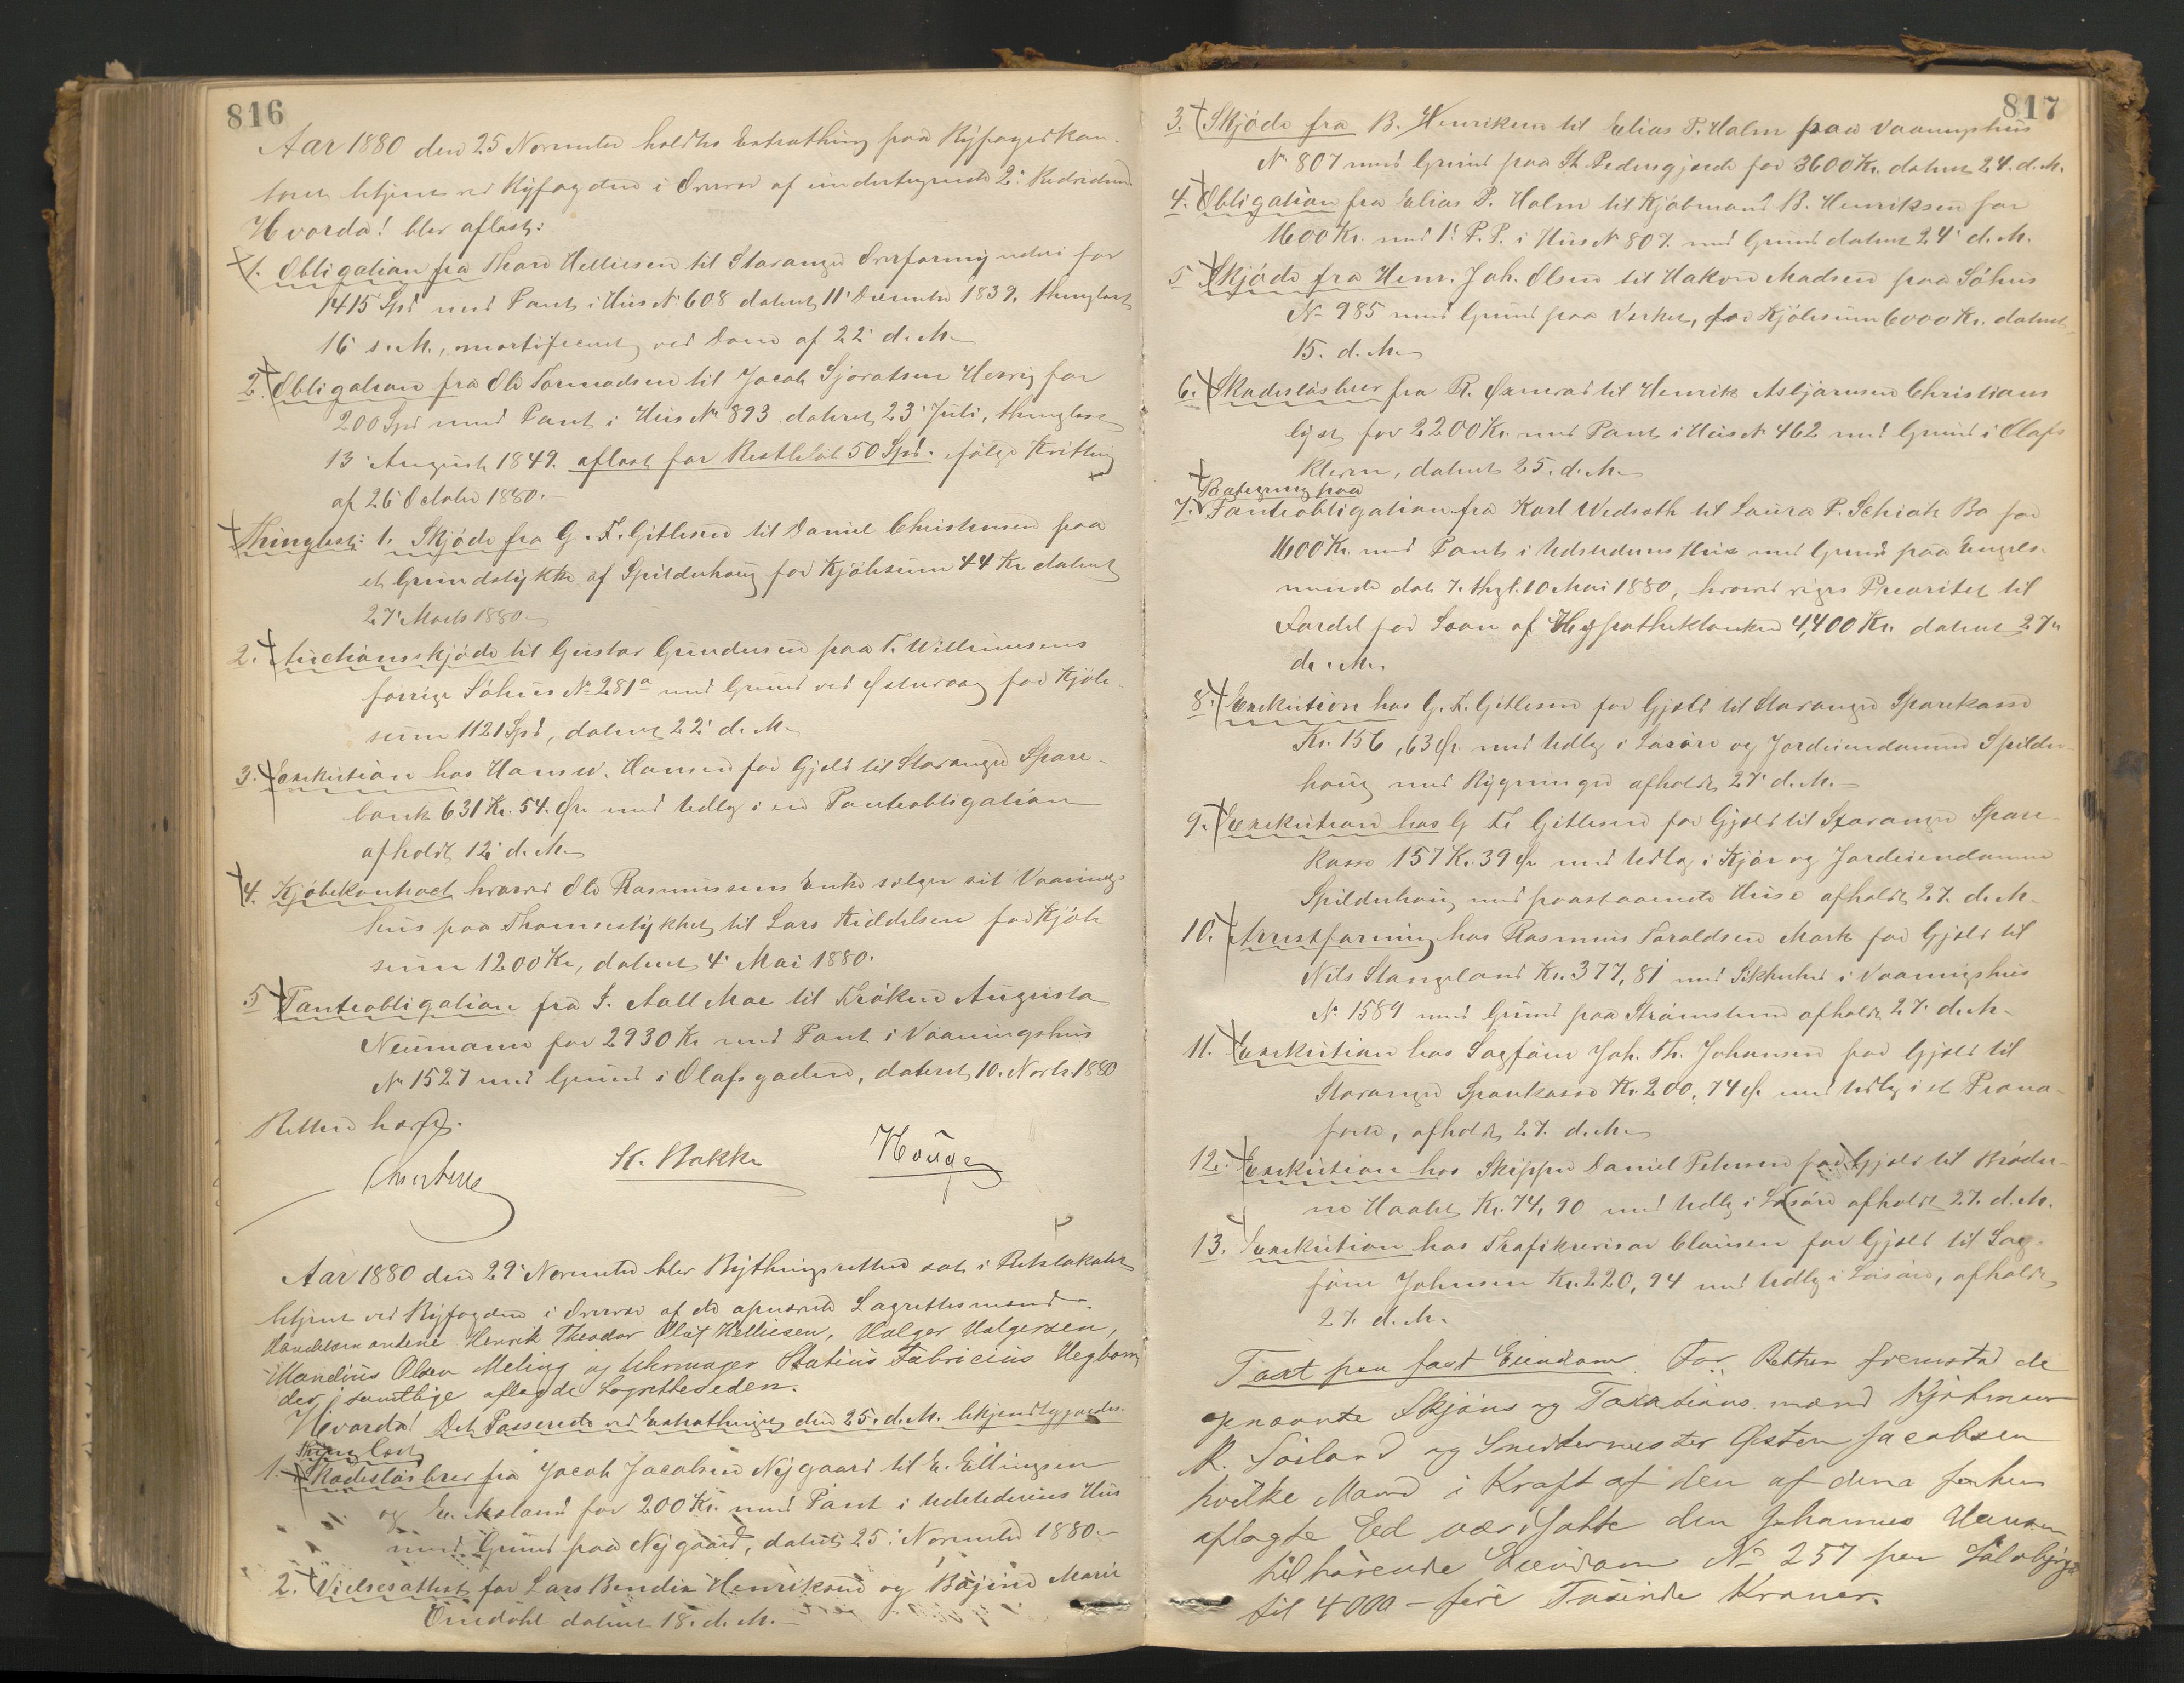 816
Aar 1880 den 25 November holdtes Extrathing paa Byfogedkon-
toret betjent ved Byfogden i Overvær af undertegnede 2de Redsidnd.
Hvorda! blev aflæst:
1. Obligation fra Thore Helliesen til Stavanger Overformynderi for
1415 Spd med Pant i Hus No 608 dateret 11' December 1839, thinglæst
16 s. M., mortificeret ved Dom af 22' d. M.
2. Obligation fra Ole Tormodsen til Jacob Sjovatsen Hervig for
200 Spd med Pant i Hus No 893 dateret 23' Juli, thinglæst
13' August 1849. aflæst for Restbeløb 50 Spd. ifølge Kvittering
af 26' October 1880.
Thinglæst: 1. Skjöde fra G. F. Gitlesen til Daniel Christensen paa
et Grundstykke af Spilderhaug for Kjöbesum 44 Kr dateret
27' Marts 1880
2. Auctionsskjöde til Gustav Gundersen paa T. Willumsens
forrige Söhus No 281a med Grund ved Østervaag for Kjöbe-
sum 1121 Spd, dateret 22' d. M.
3. Exekution hos Hans W. Hansen for Gjæld til Stavanger Spare-
bank 631 Kr. 54. Ør. med Udlæg i en Panteobligation
afholdt 12' d. M.
4. Kjöbekontract hvorved Ole Rasmussens Enke sælger sit Vaanings-
hus paa Thomsestykket til Lars Kiddelsen for Kjöbe
sum 1200 Kr, dateret 4' Mai 1880.
5 Panteobligation fra J. Aall Moe til Fröken Augusta
Neumann for 2930 Kr med Pant i Vaaningshus
No 1527 med Grund i Olafsgaden, dateret 10. Novb. 1880
Retten hævet.
K. Bakke Houge
Aar 1880 den 29' November blev Bythingsretten sat i Retslokalet
betjent ved Byfogden i Overvær af de opnævnte Lagrettesmænd.
Handelsmændene Henrik Theodor Oluf Helliesen, Holger Holgersen,
Mandius Olsen Meling og Uhrmager Statius Fabricius Hegbom,
der samtlige aflagde Lagretteseden.
Hvorda! Det Passerede ved Extrathinget den 25. d. M. bekjendtgjordes.
Thinglæst
1. Skadeslösbrev fra Jacob Jacobsen Nygaard til E. Ellingsen
og E. Asland for 200 Kr. med Pant i Udstederens Hus
med Grund paa Nygaard, dateret 25' November 1880
2. Vielsesattest for Lars Bendix Henriksen og Bojine Marie
Omdahl dateret 18. d. M.
817
3. Skjöde fra B. Henriksen til Elias P. Holm paa Vaaningshus
No 807 med Grund paa St. Pedersgjerde for 3600 Kr. dateret 24. d. M.
4. Obligation fra Elias P. Holm til Kjöbmand B. Henriksen for
1600 Kr. med 1' P. P. i Hus No 807. med Grund dateret 24' d. M.
5 Skjöde fra Henr. Joh. Olsen til Hakon Madsen paa Söhus
No 985 med Grund paa Verket, for Kjöbesum 6000 Kr. dateret
15. d. M.
6. Skadeslösbrev fra R. til Henrik Asbjørnsen Christians
lyst for 2200 Kr. med Pant i Hus No 462 med Grund i Olafs
kleven, dateret 25. d. M.
Paategning paa
7. Panteobligation fra Karl Wedseth til Laura P. Schiøtz Bo for
1600 Kr med Pant i Udstederens Hus med Grund paa Engels-
minde dat 7. thgl. 10 Mai 1880, hvorved viges Prioritet til
Fordel for Laan af Hypothekbanken 4,400 Kr. dateret 27.
d. M.
8. Exekution hos G. F. Gitlesen for Gjæld til Stavanger Sparekasse
Kr. 156,63 Ør. med Udlæg i Løsøre og Jordeiendommen Spilder-
haug med Bygninger afholdt 27' d. M.
9. Exekution hos G F. Gitlesen for Gjæld til Stavanger Spare-
kasse 157 Kr. 39 Ør med Udlæg i Kjör og Jordeiendommen
Spilderhaug med paastaaende Huse afholdt 27. d. M.
10. Arrestforretning hos Rasmus Toraldsen Mork for Gjæld til
Nils Stangeland Kr. 377,81 med Sikkerhed i Vaaningshus
No 1589 med Grund paa Strömsteen afholdt 27. d. M.
11. Exekution hos Sagfører Joh. Th. Johansen for Gjæld til
Stavanger Sparekasse Kr. 200,74 Ør med Udlæg i et Piano-
forte, afholdt 27. d. M.
12. Exekution hos Skipper Daniel Petersen for Gjæld til Bröder-
ne Haaht Kr. 74,90 med Udlæg i Løsøre afholdt 27. d. M.
13. Exekution hos Trafikrevisor Clausen for Gjæld til Sag-
fører Johnsen Kr. 220,94 med Udlæg i Løsøre, afholdt
27. d. M.
Taxt paa fast Eiendom. For Retten fremstod de
opnævnte Skjöns og Taxations mænd Kjöbmand
R. Soiland og Snedkermester Østen Jacobsen
hvilke Mænd i Kraft af den af dem forhen
aflagte Ed værdsatte den Johannes Hansen
tilhörende Eiendom No 257 paa Sölvberget
til 4000 – fire Tusinde Kroner.